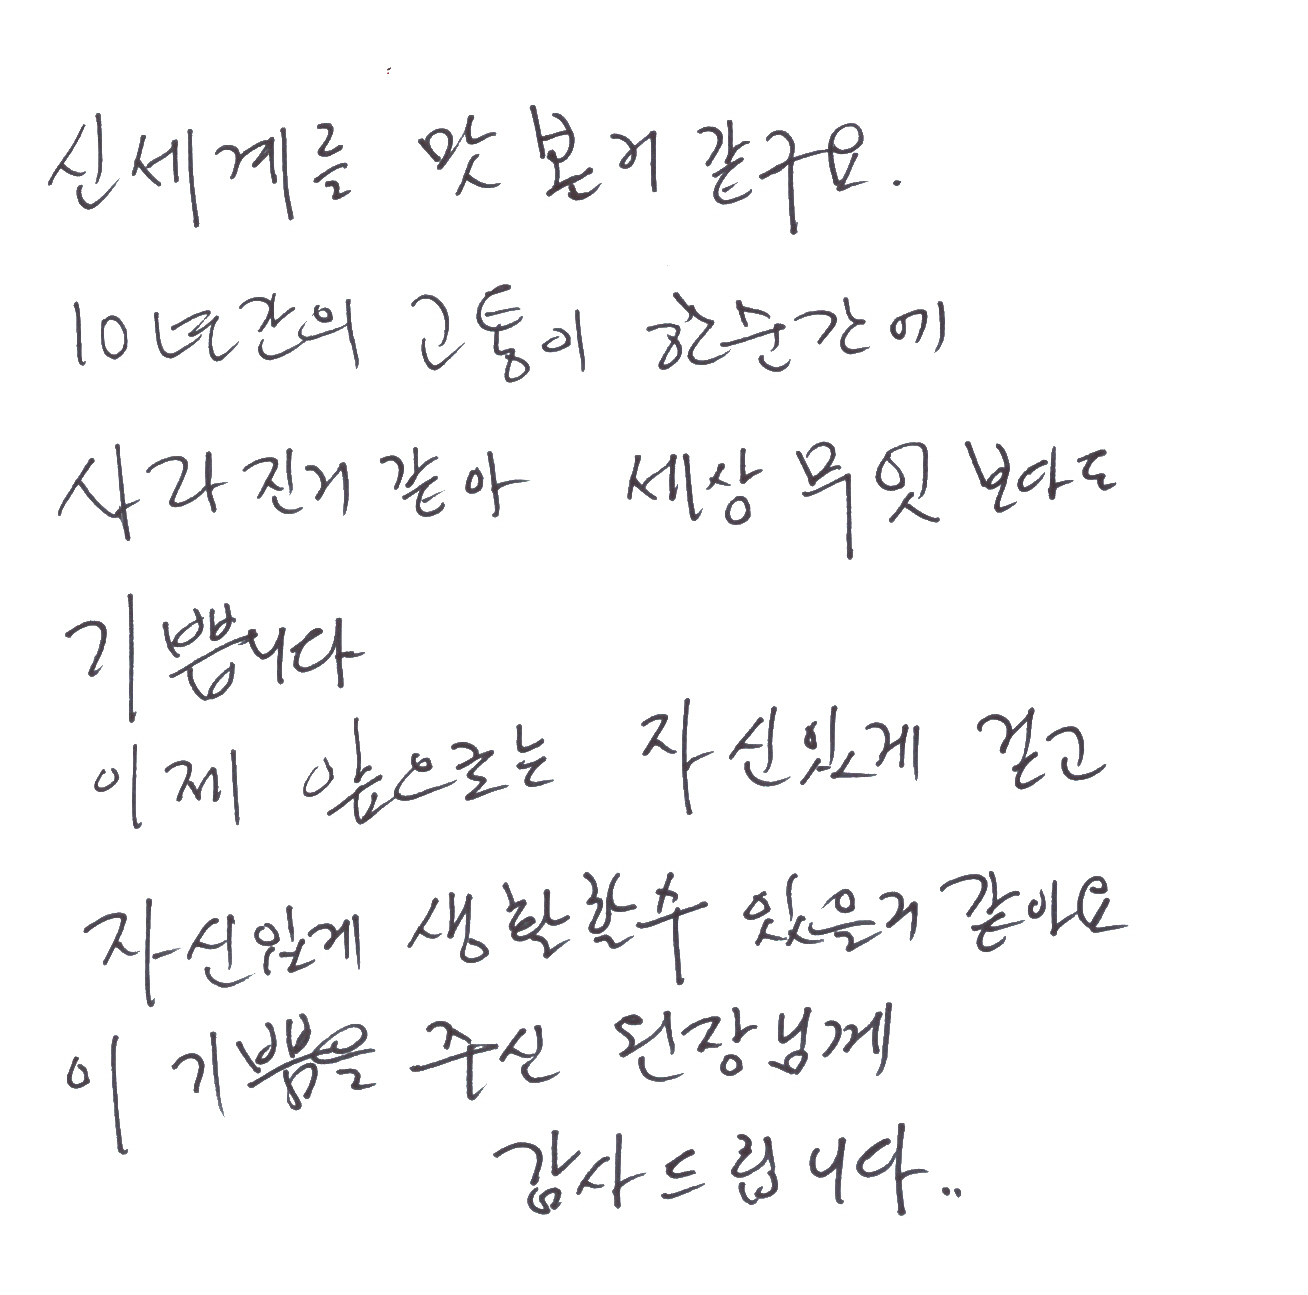 신세계를 맛 본거 같구요.
10년간의 고통이 한순간에
사라진거 같아 세상 무엇보다도
기쁩니다
이제 앞으로는 자신있게 걷고
자신있게 생활할수 있을거 같아요
이 기쁨을 주신 원장님께
감사드립니다..